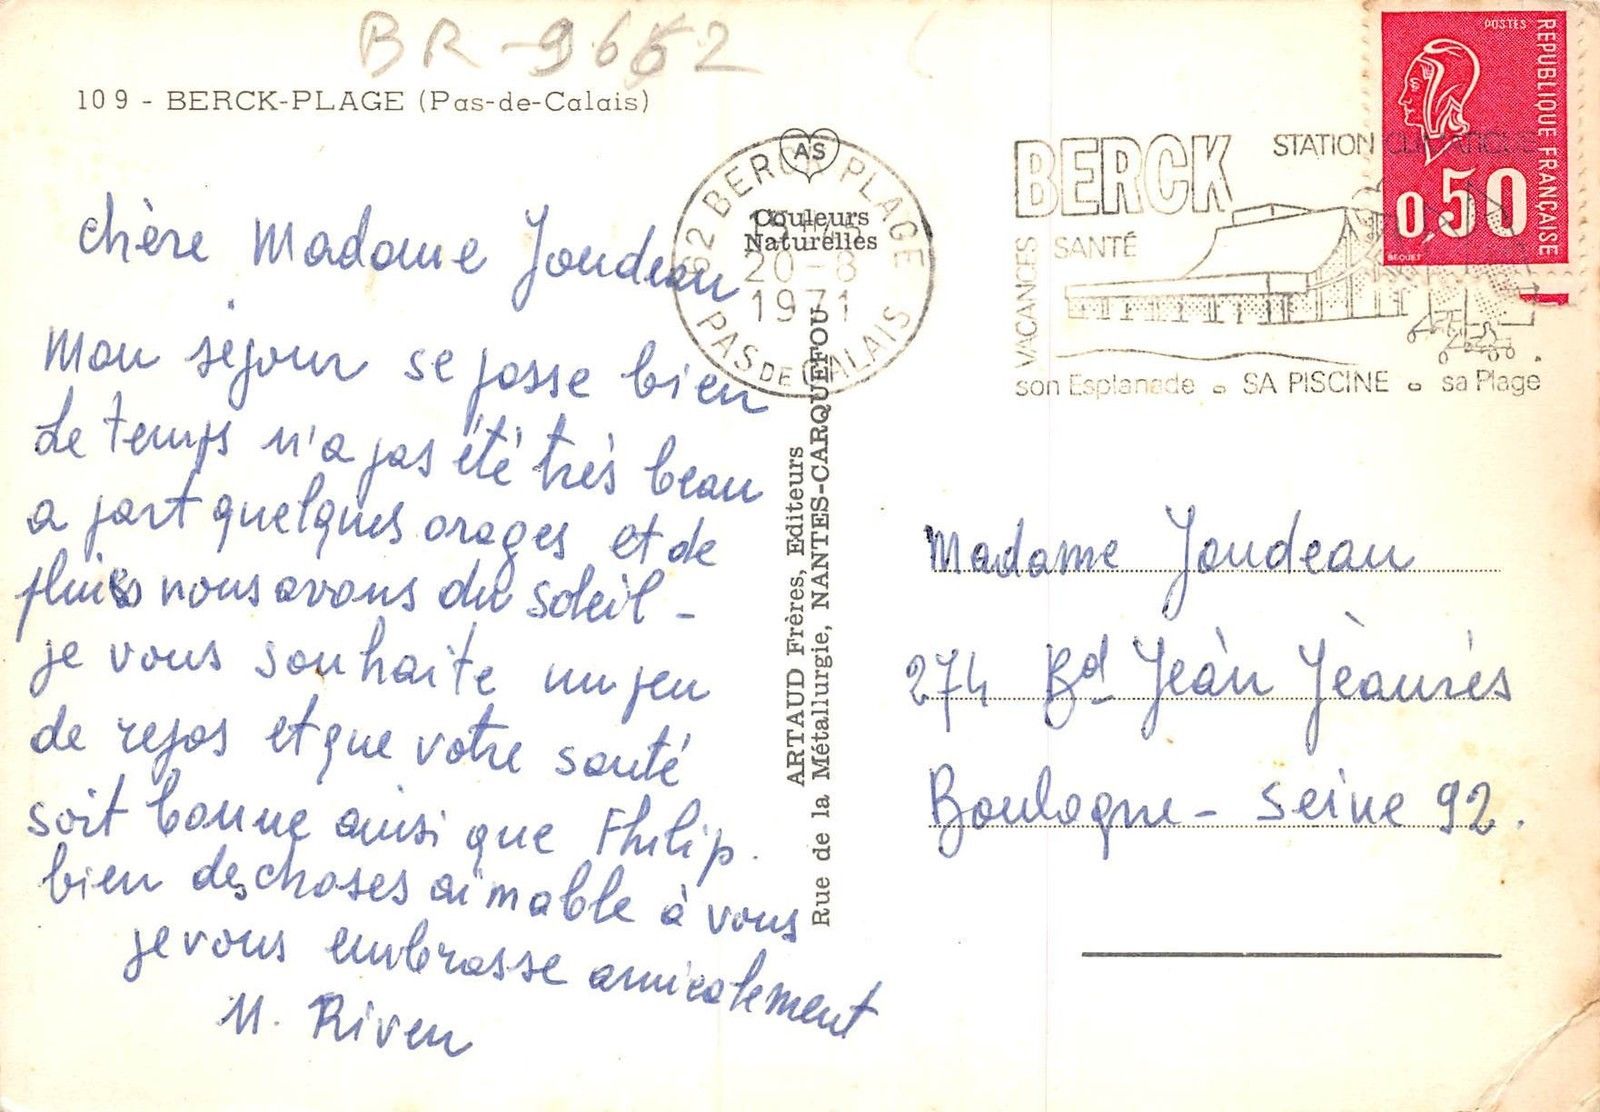 BR-9662
109 - BERCK-PLAGE (Pas-de-Calais)
chère Madame Joudeau
Mon séjour se passe bien
Le temps n'a pas été très beau
a part quelques orages et de
pluies nous avons du soleil -
je vous souhaite un peu
de repos et que votre santé
soit bonne ainsi que Philip.
bien des choses aimable à vous
je vous embrasse amicalement
M. Riven
AS
Couleurs
Naturelles
62 BERCK PLAGE
20 - 8
1971
PAS DE CALAIS
ARTAUD Frères, Editeurs
Rue de la Métallurgie, NANTES-CARQUEFOU
BERCK
STATION CLIMATIQUE
VACANCES
SANTÉ
son Esplanade o SA PISCINE o sa Plage
POSTES
REPUBLIQUE FRANÇAISE
0,50
BEQUET
Madame Joudeau
274 Bd Jeàn Jèaurés
Boulogne - Seine 92.